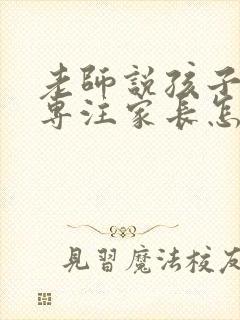 老師說孩子
專注家長怎
見習魔法校友